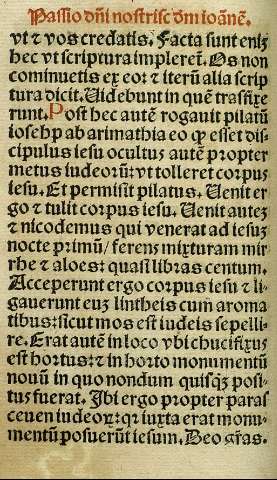 Passio dñi nostri sc̄ dm̄ ioãnẽ.
vt ⁊ vos credatis. Facta sunt eniȝ
hec vt scriptura impleret̃. Os non
cominuetis ex eo: ⁊ iterũ alia scrip
tura dicit. Uidebunt in quẽ transfixe
runt. Post hec autẽ rogauit pilatũ
ioseph ab arimathia eo ꝙ esset dis
cipulus iesu ocultus autẽ propter
metus iudeoꝝ: vt tolleret corpus
iesu. Et permisit pilatus. Uenit er
go ⁊ tulit corpus iesu. Uenit auteȝ
⁊ nicodemus qui venerat ad iesuȝ
nocte primũ/ ferens mixturam mir
rhe ⁊ aloes: quasi libras centum.
Acceperunt ergo corpus iesu ⁊ li
gauerunt euȝ lintheis cum aroma
tibus: sicut mos est iudeis sepelli
re. Erat autẽ in loco vbi chucifixus
est hortus: ⁊ in horto monumentũ
nouũ in quo nondum quisq̃ȝ posi
tus fuerat. Ibi ergo propter paras
ceuen iudeoꝝ: qr iuxta erat monu
mentũ posuerũt iesum. Deo gr̃as.